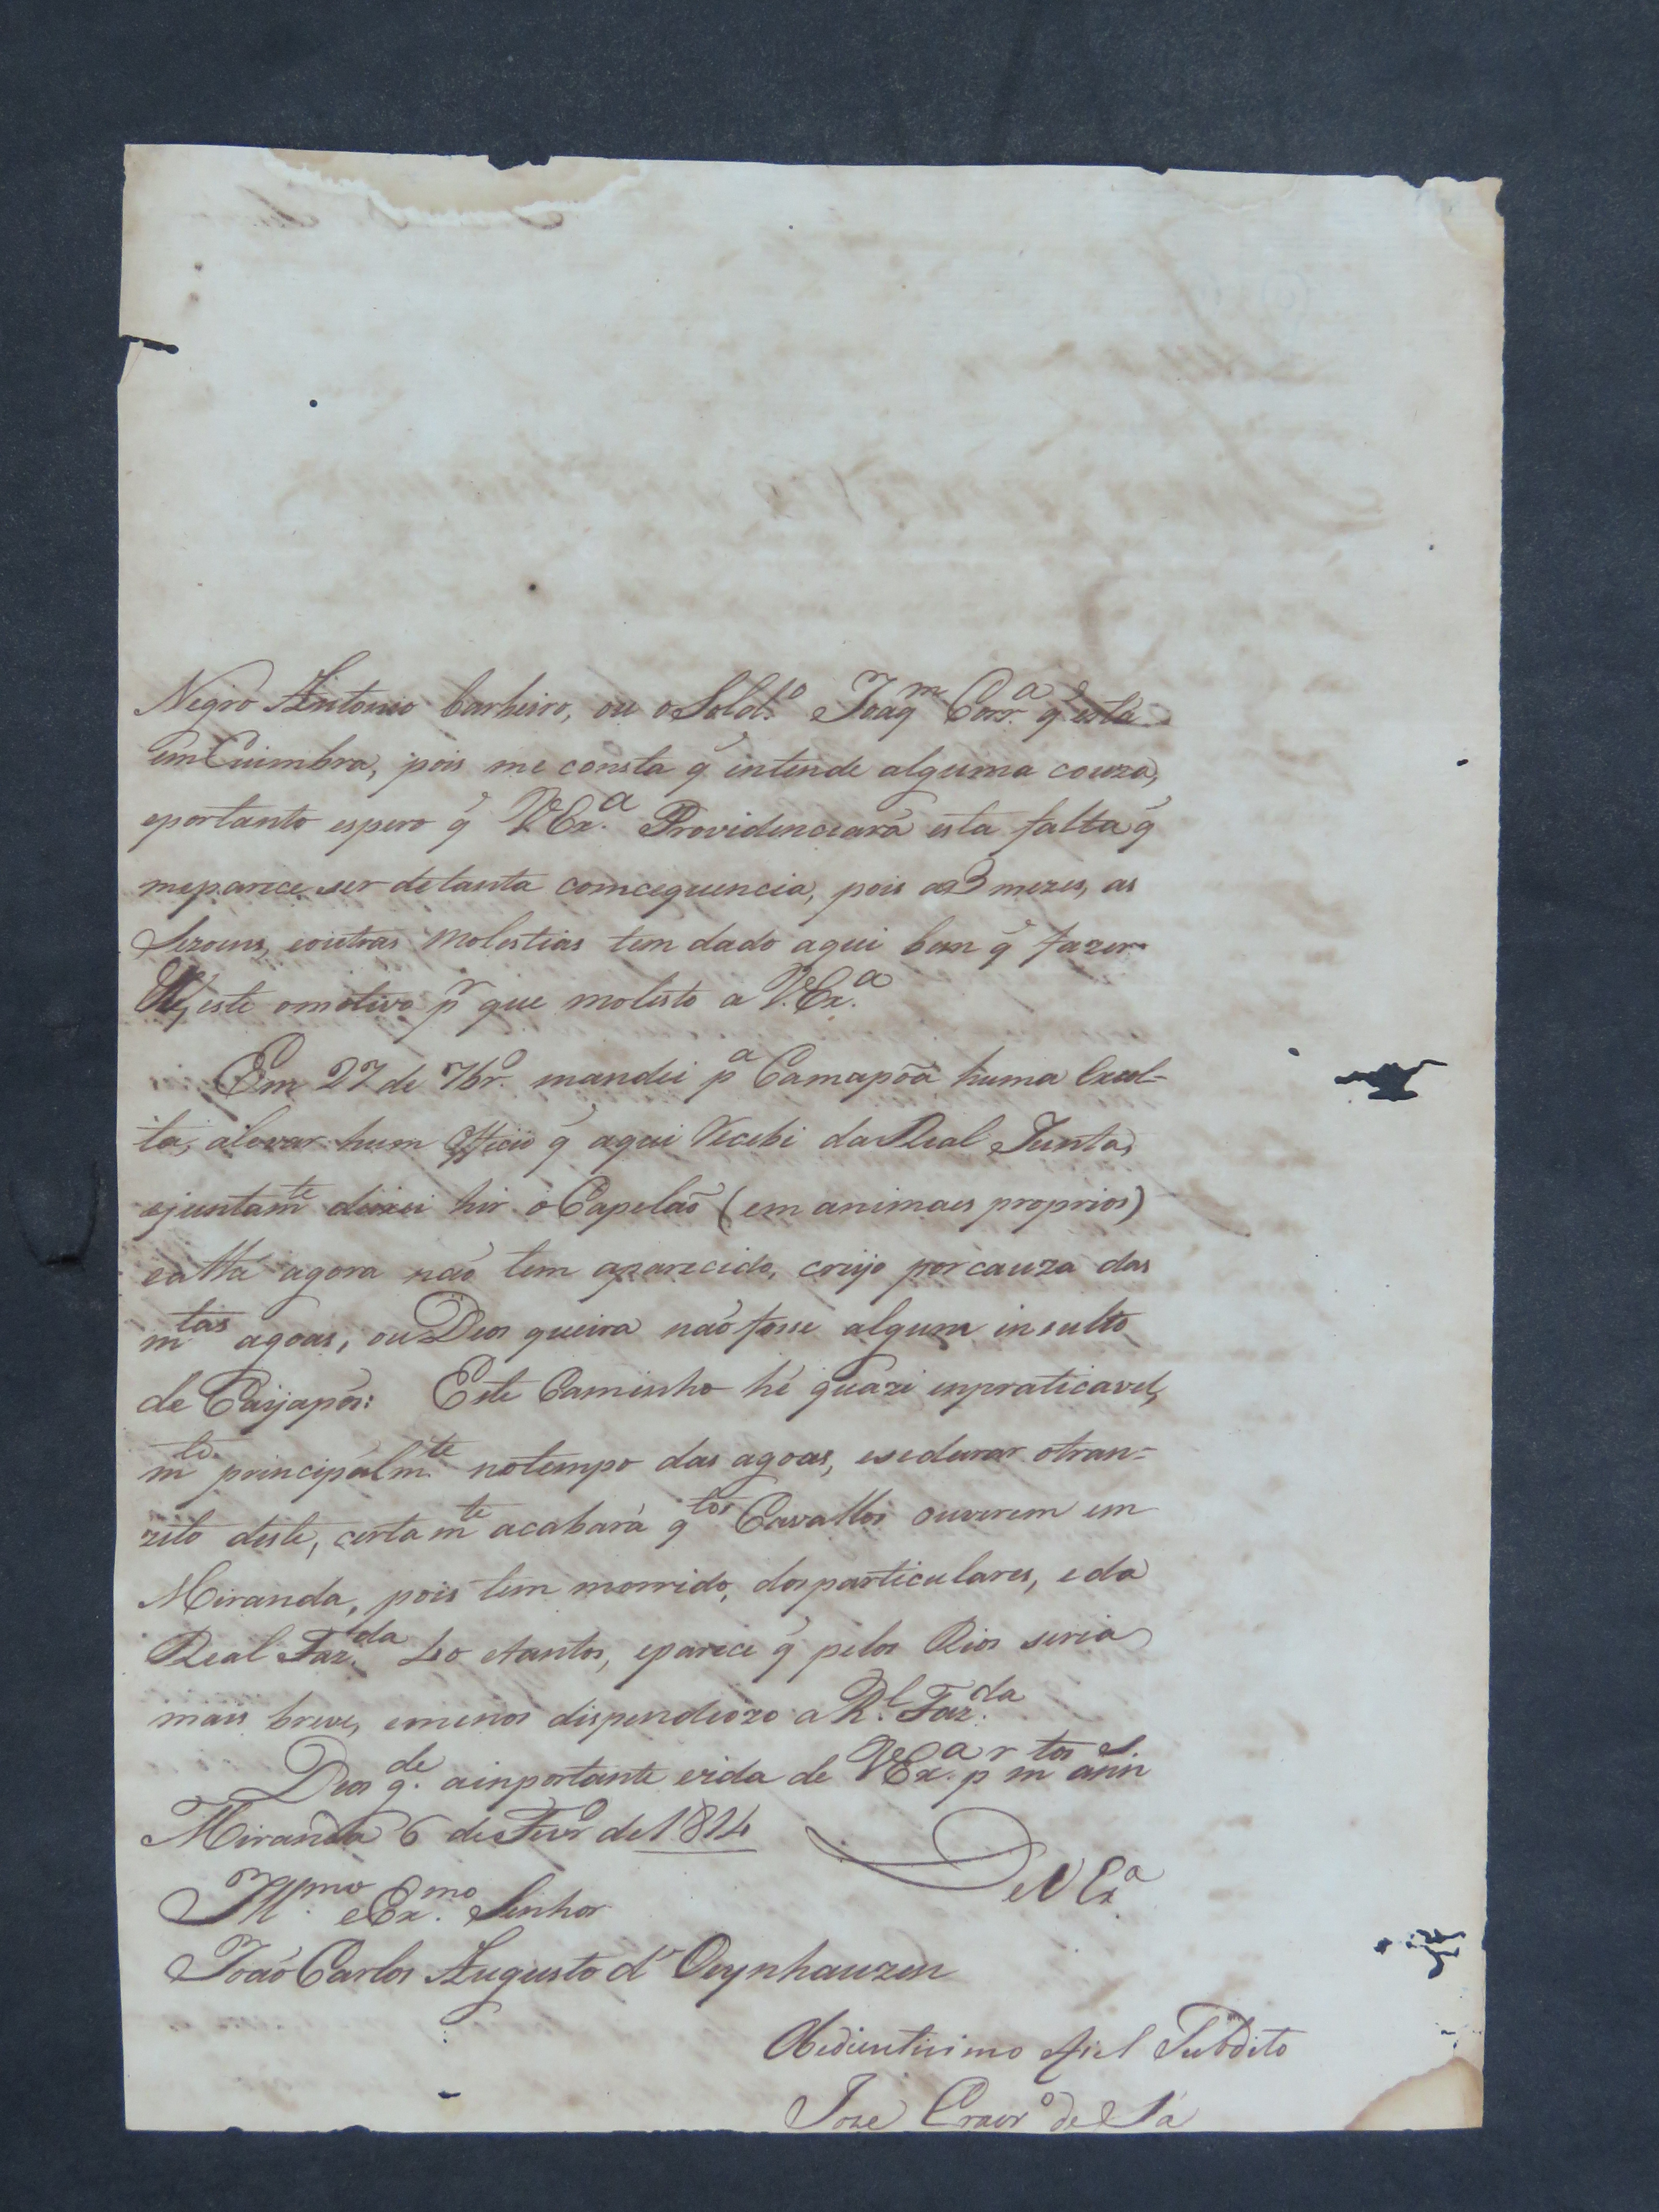 Negro Antonio barbeiro, ou o Sold.º Joaqm Corr.ª q̃ está
em Cuimbra, pois me consta q̃ intende alguma couza,
eportanto espero q̃ VEx.ª Providenciará esta falta q̃
meparece ser detanta comcequencia, pois as 3 mezes, as
Sezoens, eoutras Molestias tem dado aqui bem q̃ fazer
Hé, este omotivo pr que molesto a V.Ex.ª
Em 27 de 7br.º mandei pª Camapoã huma Escol=
ta, alevar hum Officio q̃ aqui Recebi da Real Junta,
ejuntamte deixei hir o Capelaõ (em animaes proprios)
eatthé agora naõ tem aparecido, creijo porcauza das
mtas agoas, ou Deos queira naõ fosse algum insulto
de Caijapos: Este Caminho hé quazi enpraticavel,
mto principalm.te notempo das agoas, esedurar otran=
zito deste, certamte acabará qtos Cavallos ouverem em
Miranda, pois tem morrido, dos particulares, eda
Real Faz.da 40 etantos, eparece q̃ pelos Rios seria
mais breve, emenos dispendiozo a R.l Faz.da
Deos g.de ainportante vida de VEx.ª pr mtos ann.s
Miranda 6 de Fevrº de 1814
De V Exª
Ill.mo eEx.mo Senhor
Joaõ Carlos Augusto d' Oeynhauzen
Obedientisimo efiel Subdito
Joze Craverº de Sá